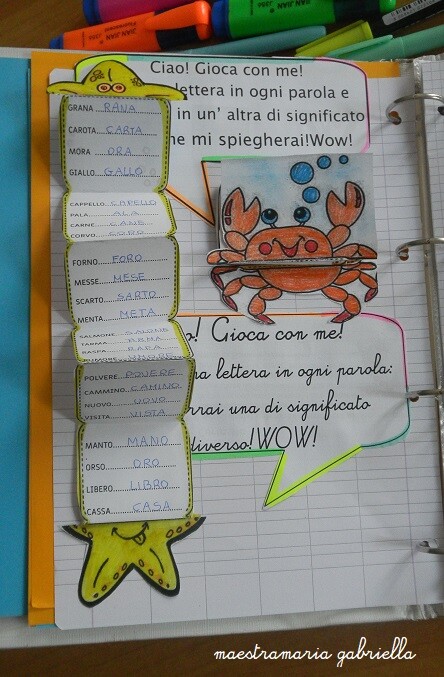 Ciao! Gioca con me!
lettera in ogni parola e
in un' altra di significato
me mi spiegherai!Wow!
GRANA......RANA
CAROTA.....CARTA
MORA.......ORA
GIALLO.....GALLO
CAPPELLO...CAPELLO
PALA.......ALA
CARNE......CANE
CORVO......CORO
FORNO......FORO
MESSE......MESE
SCARTO.....SARTO
MENTA......META
SALMONE....SALONE
TARMA......RAMA
RASPA......RAPA
POLVERE....POVERE
CAMMINO....CAMINO
NUOVO......UOVO
VISITA.....VISTA
MANTO......MANO
ORSO.......ORO
LIBERO.....LIBRO
CASSA......CASA
o! Gioca con me!
na lettera in ogni parola:
rrai una di significato
diverso!WOW!
maestramaria gabriella